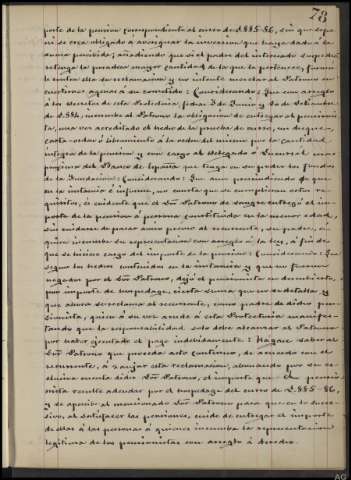 78
porte de la pension correspondiente al curso de 1.885-86, sin que
ni se crea obligado á averiguar la inversion que haya dado á la
suma percibida; añadiendo que si el padre del interesado
retenga la
contra ella su reclamacion y no intente mezclar al Patrono en
cuestiones agenas á su cometido: Considerando: Que con arreglo
á los decretos de este Protectorado, fechas 3 de Junio y 30 de Setiembre
de 1.884, incumbe al Patrono la obligacion de entregar al pensionis-
ta, una vez acreditado el hecho de la prueba de curso, un cheque,
carta-orden ó libramiento á la orden del mismo por la cantidad
íntegra de la pension y con cargo al Delegado ó Sucursal del
Banco de España que tenga en su poder los fondos
de la fundacion: Considerando: Que aun prescindiendo de que
en la instancia é informe, no consta que se cumplieran estos re-
quisitos, es evidente que el Sr. Patrono de sangre entregó el im-
porte de la pension á persona constituida en la menor edad,
sin cuidarse de pasar aviso previo al recurrente, su padre, á
quien incumbe su representacion con arreglo á la ley, á fin de
que se hiciese cargo del importe de la pension: Considerando: Que
segun los hechos contenidos en la instancia y que no fueron
negados por el Sr. Patrono, dejó el pensionista en descubierto,
por importe de hospedage, cierta suma que no se detalla y
que ahora se reclama al recurrente, como padre de dicho pen-
sionista, quien á su vez acude á este Protectorado manifes-
tando que la responsabilidad solo debe alcanzar al Patrono
por haber ejecutado el pago indebidamente: Hágase saber al
Sr. Patrono que proceda acto continuo, de acuerdo con el
recurrente, á zanjar esta reclamacion, abonando por su es-
clusiva cuenta dicho Sr. Patrono, el importe que el pensio-
nista resulte adeudar por el hospedage del curso de 1.885-86,
y se aperciba al mencionado Sr. Patrono para que en lo suce-
sivo, al satisfacer las pensiones, cuide de entregar el importe
de ellas á las personas á quienes incumba la representacion
legítima de los pensionistas con arreglo á derecho.